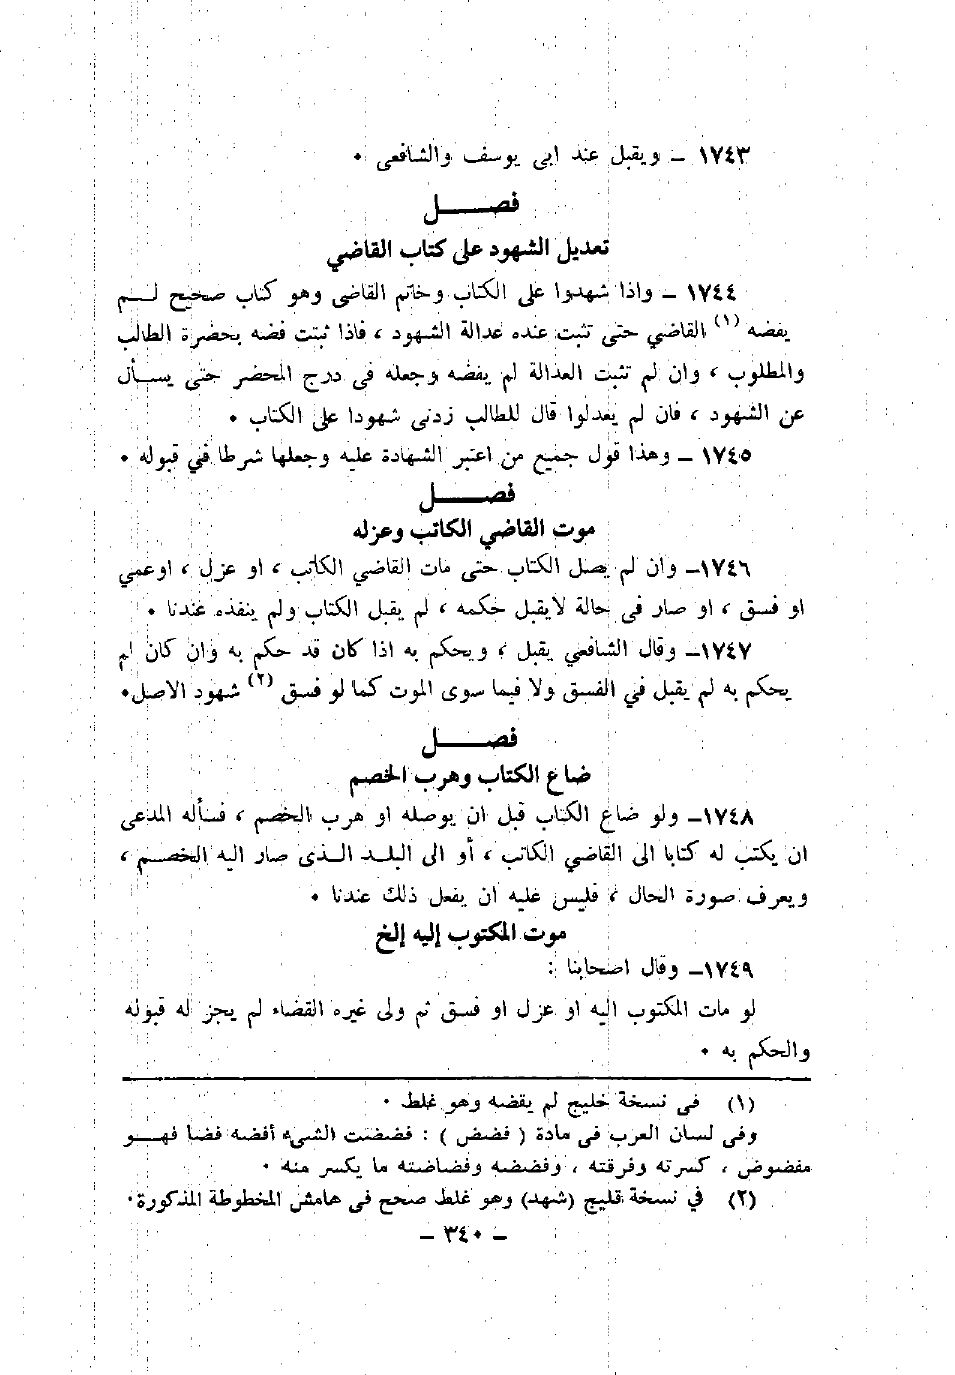 ١٧٤٣ ـ ويقبل عند ابى يوسف والشافعى ٠
فصـــــل
تعديل الشهود على كتاب القاضي
١٧٤٤ ـ واذا شهدوا على الكتاب وخاتم القاضى وهو كتاب صحيح لـــم
يفضه (١) القاضي حتى تثبت عنده عدالة الشهود ، فاذا ثبتت فضه بحضرة الطالب
والمطلوب ، وان لم تثبت العدالة لم يفضه وجعله فى درج المحضر حتى يســأل
عن الشهود ، فان لم يعدلوا قال للطالب زدنى شهودا على الكتاب ٠
١٧٤٥ ـ وهذا قول جميع من اعتبر الشهادة عليه وجعلها شرطا في قبوله ٠
فصـــــل
موت القاضي الكاتب وعزله
١٧٤٦ـ وان لم يصل الكتاب حتى مات القاضي الكاتب ، او عزل ، اوعمي
او فسق ، او صار فى حالة لايقبل حكمه ، لم يقبل الكتاب ولم ينفذه عندنا ٠
١٧٤٧ـ وقال الشافعي يقبل ، ويحكم به اذا كان قد حكم به وان كان لم
يحكم به لم يقبل في الفسق ولا فيما سوى الموت كما لو فسق (٢) شهود الاصل٠
فصـــــل
ضاع الكتاب وهرب الخصم
١٧٤٨ـ ولو ضاع الكتاب قبل ان يوصله او هرب الخصم ، فسأله المدعى
ان يكتب له كتابا الى القاضي الكاتب ، أو الى البلـد الـذى صار اليه الخصــم ،
ويعرف صورة الحال ، فليس عليه ان يفعل ذلك عندنا ٠
موت المكتوب إليه إلخ
١٧٤٩ـ وقال اصحابنا :
لو مات المكتوب اليه او عزل او فسق ثم ولى غيره القضاء لم يجز له قبوله
والحكم به ٠
(١) فى نسخة خليج لم يقضه وهو غلط ٠
وفى لسان العرب فى مادة ( فضض ) : فضضت الشىء أفضه فضا فهـــو
مفضوض ، كسرته وفرقته ، وفضضه وفضاضته ما يكسر منه ٠
(٢) في نسخة قليج (شهد) وهو غلط صحح فى هامش المخطوطة المذكورة٠
ـ ٣٤٠ ـ